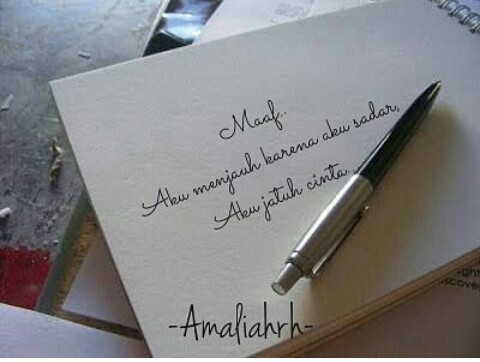 Maaf..
Aku menjauh karena aku sadar,
Aku jatuh cinta..
-Amaliahrh-